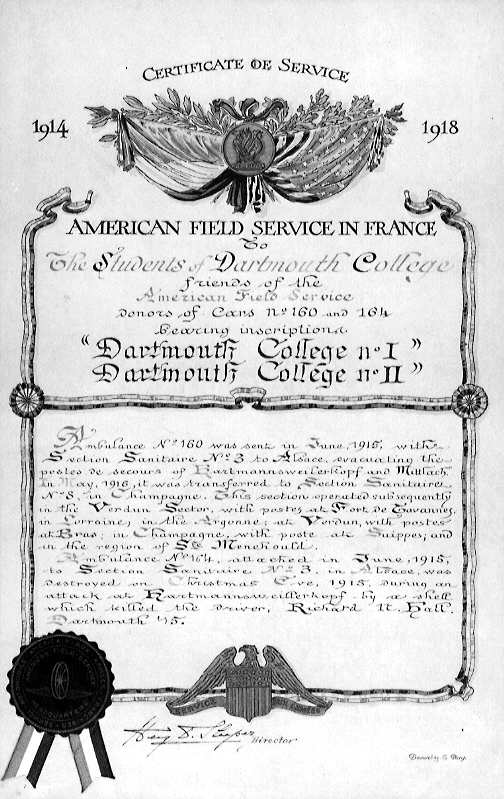 CERTIFICATE OF SERVICE
1914 1918
AMERICAN FIELD SERVICE IN FRANCE
To
The Students of Dartmouth College
friends of the
American Field Service
donors of Cars nº 160 and 164
bearing inscriptions
"Dartmouth College nº I"
Dartmouth College nº II"
Ambulance Nº 160 was sent in June, 1915, with
Section Sanitaire Nº 3 to Alsace, evacuating the
postes de secours of Hartmannsweilerkopf and Mittlach.
In May, 1916, it was transferred to Section Sanitaire
Nº 8, in Champagne. This section operated subsequently
in the Verdun Sector, with postes at Fort de Tavannes,
in Lorraine; in the Argonne; at Verdun, with postes
at Bras; in Champagne, with poste at Suippes; and
in the region of Ste Menehould.
Ambulance Nº 164, attached in June, 1915,
to Section Sanitaire Nº 3, in Alsace, was
destroyed on Christmas Eve, 1915, during an
attack at Hartmannsweilerkopf by a shell
which killed the driver, Richard N. Hall.
Dartmouth '15.
SERVICE
Director